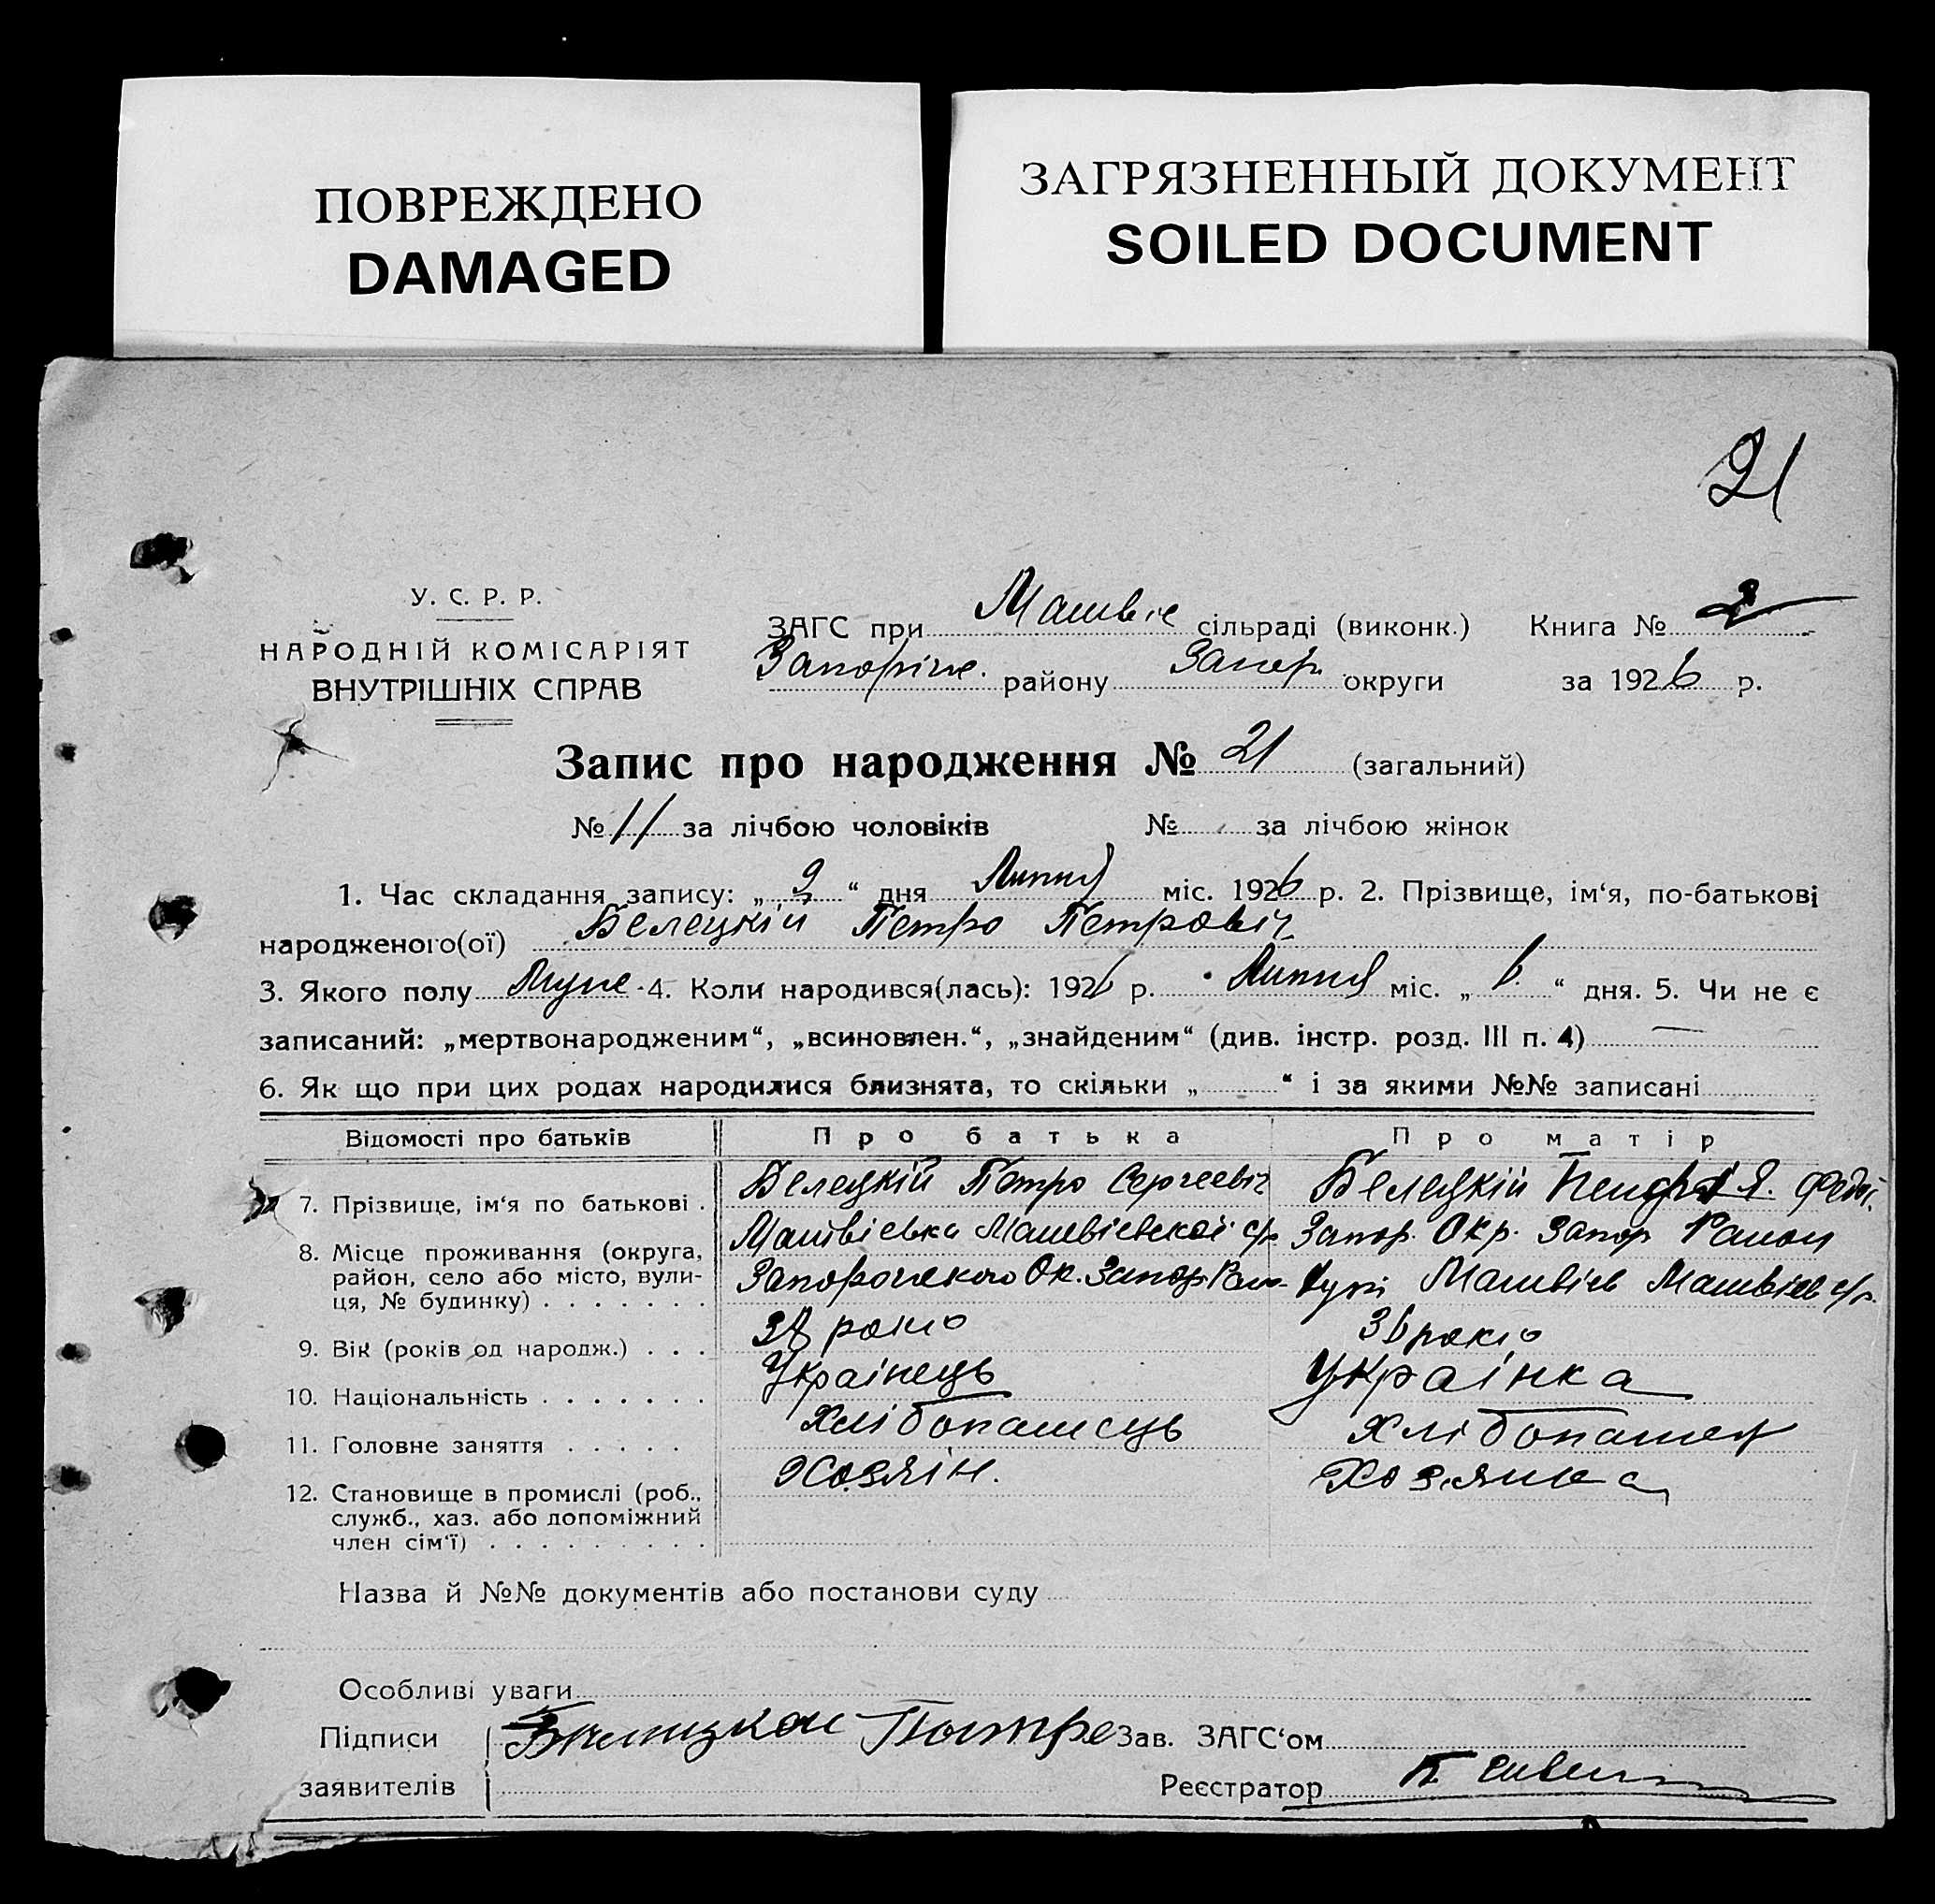 ПОВРЕЖДЕНО
DAMAGED
ЗАГРЯЗНЕННЫЙ ДОКУМЕНТ
SOILED DOCUMENT
21
У. С. Р. Р.
НАРОДНІЙ КОМІСАРІЯТ
ВНУТРІШНІХ СПРАВ
ЗАГС при Матвіє сільраді (виконк.) Книга № 2
Запоріж. району Запор. округи за 1926 р.
Запис про народження № 21 (загальний)
№ 11 за лічбою чоловіків № за лічбою жінок
1. Час складання запису: „ 9 “ дня Липня міс. 1926 р. 2. Прізвище, ім‘я, по-батькові
народженого(ої) Белецкій Петро Петровіч
3. Якого полу Муже 4. Коли народився(лась): 1926 р. Липня міс. „ 6. “ дня. 5. Чи не є
записаний: „мертвонародженим“, „всиновлен.“, „знайденим“ (див. інстр. розд. III п. 4) —
6. Як що при цих родах народилися близнята, то скільки „ “ і за якими №№ записані
Відомості про батьків Про батька Про матір
7. Прізвище, ім‘я по батькові . Белецкій Петро Сергеевіч Белецкій Я. Федос.
8. Місце проживання (округа, Матвіевка Матвіевской с/р Запор. Окр. Запор Район
район, село або місто, вули- Запорожского Ок. Запор Рай- Матвіев Матвіев с/р.
ця, № будинку) . . . . . . .
9. Вік (років од народж.) . . . 38 років 36 років
10. Національність . . . . . . . Украінець Украінка
11. Головне заняття . . . . . Хлібопашець Хлібопашец
12. Становище в промислі (роб., Хозяін. Хозяйка
служб., хаз. або допоміжний
член сім‘ї) . . . . . . . . .
Назва й №№ документів або постанови суду
Особливі уваги
Підписи Петре Зав. ЗАГС‘ом
заявителів Реєстратор